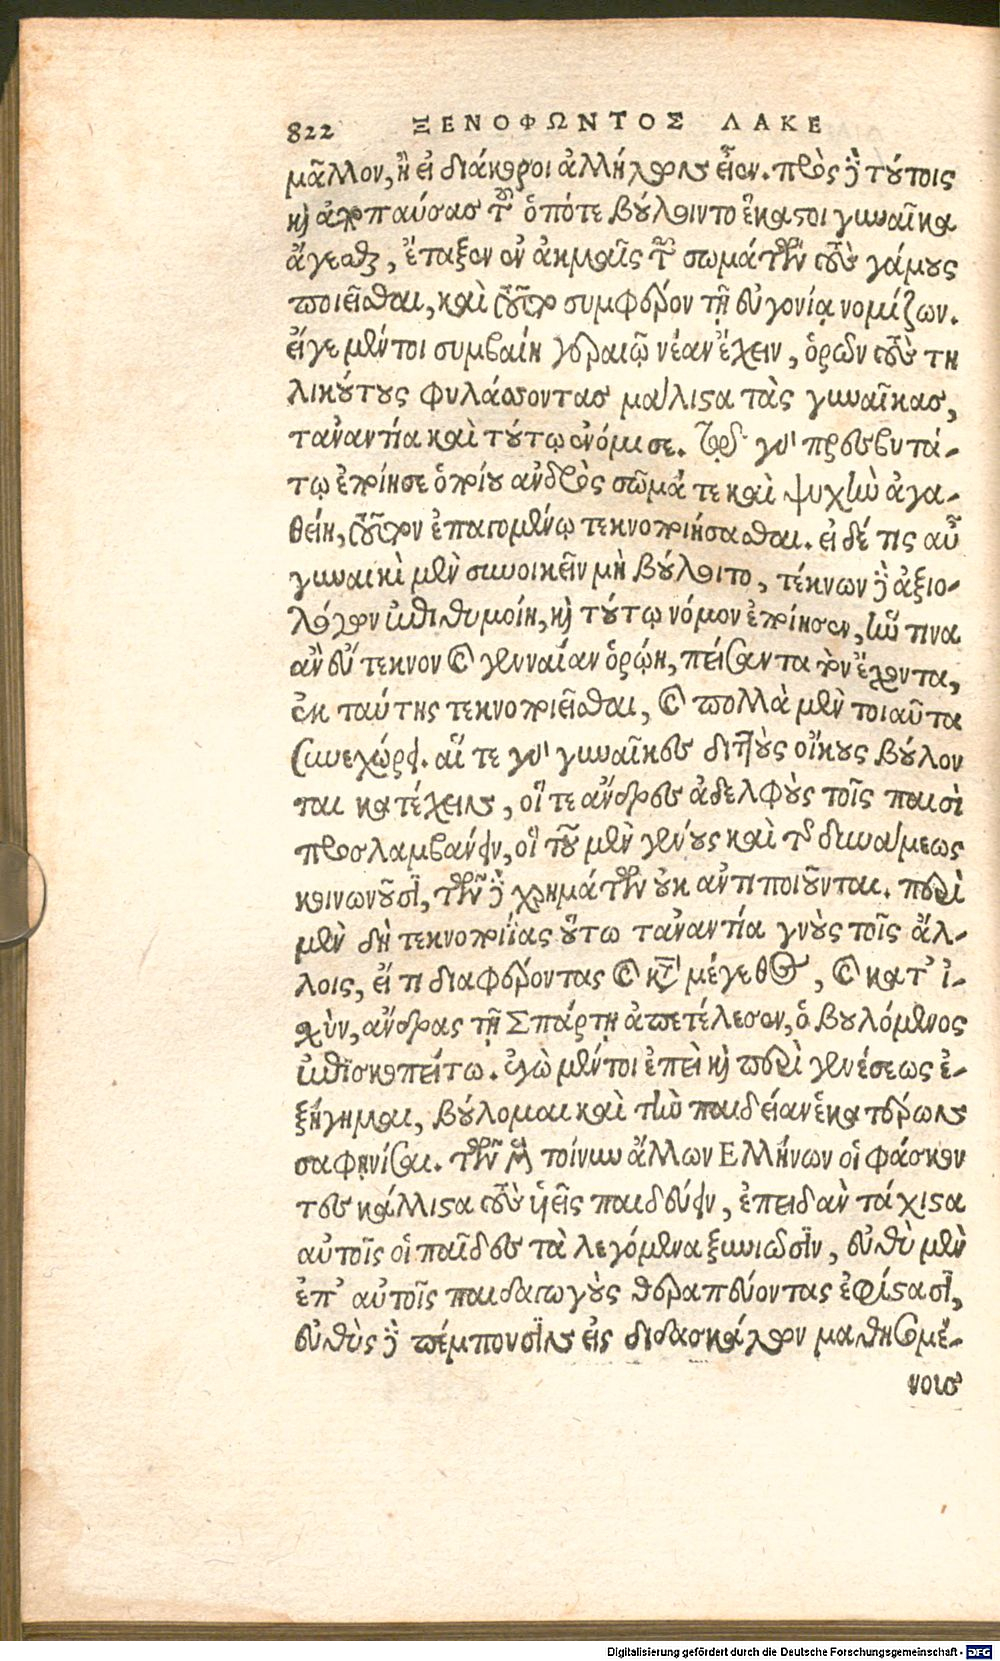 822 ΞΕΝΟΦΩΝΤΟΣ ΛΑΚΕ
μᾶλλον, ἢ εἰ διάκοροι ἀλλήλοις εἶεν. πρὸς δὲ τούτοις
καὶ ἀποπαύσας τοῦ ὁπότε βούλοιντο ἕκαστοι γυναῖκα
ἄγεσθαι, ἔταξεν ἐν ἀκμαῖς τῶν σωμάτων τοὺς γάμους
ποιεῖσθαι, καὶ τοῦτο συμφέρον τῇ εὐγονίᾳ νομίζων.
εἴγε μέντοι συμβαίη γεραιῷ νέαν ἔχειν, ὁρῶν τοὺς τη
λικούτους φυλάσσοντας μάλιστα τὰς γυναῖκας,
τἀναντία καὶ τούτῳ ἐνόμισε. τῷ γὰρ πρεσβυτά-
τῳ ἐποίησε ὁποίου ἀνδρὸς σῶμά τε καὶ ψυχὴν ἀγα-
θείη, τοῦτον ἐπαγομένῳ τεκνοποιήσασθαι. εἰ δέ τις αὖ
γυναικὶ μὲν συνοικεῖν μὴ βούλοιτο, τέκνων δὲ ἀξιο-
λόγων ἐπιθυμοίη, καὶ τούτῳ νόμον ἐποίησεν, ἥν τινα
ἂν εὔτεκνον καὶ γενναίαν ὁρῴη, πείσαντα τὸν ἔχοντα,
ἐκ ταύτης τεκνοποιεῖσθαι, καὶ πολλὰ μὲν τοιαῦτα
συνεχώρει. αἵ τε γὰρ γυναῖκες διττοὺς οἴκους βούλον
ται κατέχειν, οἵ τε ἄνδρες ἀδελφοὺς τοῖς παισὶ
προσλαμβάνειν, οἳ τοῦ μὲν γένους καὶ τῆς δυνάμεως
κοινωνοῦσι, τῶν δὲ χρημάτων οὐκ ἀντιποιοῦνται. περὶ
μὲν δὴ τεκνοποιΐας οὕτω τἀναντία γνοὺς τοῖς ἄλ-
λοις, εἴ τι διαφέροντας καὶ κατὰ μέγεθος, καὶ κατ' ἰ-
σχὺν, ἄνδρας τῇ Σπάρτῃ ἀπετέλεσεν, ὁ βουλόμενος
ἐπισκοπείτω. ἐγὼ μέντοι ἐπεὶ καὶ περὶ γενέσεως ἐ-
ξήγημαι, βούλομαι καὶ τὴν παιδείαν ἑκατέρων
σαφηνίσαι. τῶν μὲν τοίνυν ἄλλων Ελλήνων οἱ φάσκον
τες κάλλιστα τοὺς υἱεῖς παιδεύειν, ἐπειδὰν τάχιστα
αὐτοῖς οἱ παῖδες τὰ λεγόμενα ξυνιῶσιν, εὐθὺ μὲν
ἐπ' αὐτοῖς παιδαγωγοὺς θεραπεύοντας ἐφίστασι,
εὐθὺς δὲ πέμπουσιν εἰς διδασκάλων μαθησομέ-
νοις
Digitalisierung gefördert durch die Deutsche Forschungsgemeinschaft - DFG